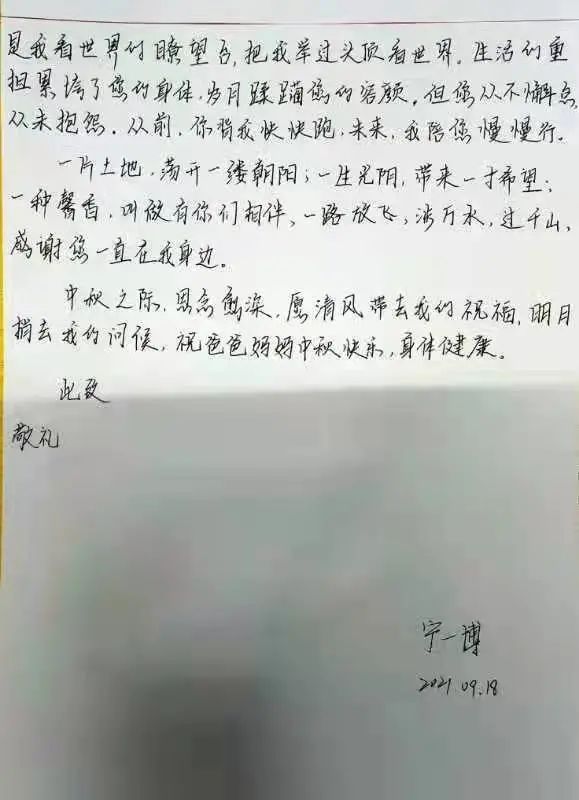 是我看世界的瞭望台,把我举过头顶看世界。生活的重
担累垮了您的身体,岁月蹂躏您的容颜。但您从不懈怠,
从未抱怨。从前,你背我快快跑,未来,我陪您慢慢行。
一片土地,荡开一缕朝阳;一生光阴,带来一寸希望;
一种馨香,叫做有你们相伴,一路放飞,涉万水,过千山,
感谢您一直在我身边。
中秋之际,思念愈深,愿清风带去我的祝福,明月
捎去我的问候,祝爸爸妈妈中秋快乐,身体健康。
此致
敬礼
宁一博
2021.09.18